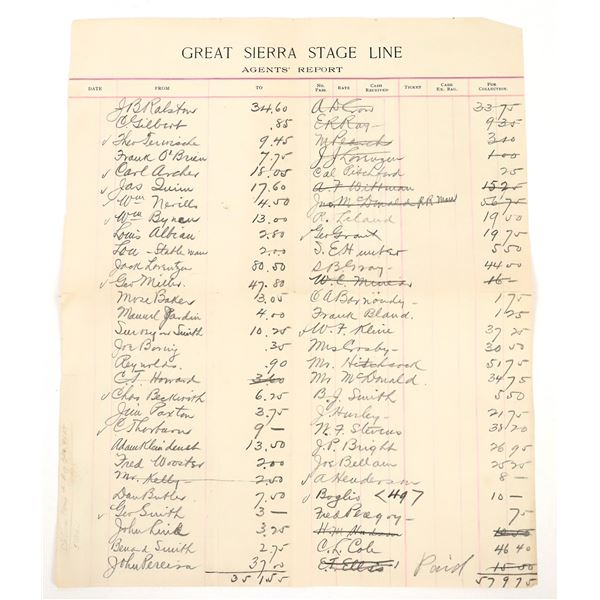 GREAT SIERRA STAGE LINE
AGENTS' REPORT
DATE FROM TO No. Pass. RATE CASH RECEIVED TICKET CASH EX. BAG. FOR COLLECTION.
J B Ralston 34.60 A D Crow 33 75
C Gilbert .85 E R Ray - 9 35
√ Theo 9.45 M 3 00
Frank O'Brien 7.75 J J 1 00
√ Carl Archer 18.05 Cal Pitchford 25
√ Jas Quinn 17.60 A F Wittman 15 25
Wm Neville 4.50 Jno. M McDonald R.R. Man 56 75
√ Wm 13.00 R. Leland 19 50
Louis Albian 2.80 √ Geo Grant 19 75
Lou - Stableman 2.00 T. E Hunter 5 50
Jack Lorentzen 80.50 S B Gray - 44 00
√ Geo Miller 47.80 W. C. 16 -
Mose Baker 13.05 C A - 1 75
Manuel Jardin 4.00 Frank Bland. 1 25
Smith 10.25 √ W. F. Kleine 37 25
Joe Boring .35 Mrs Crosby - 30 50
Reynolds. .90 Mr. Hitchcock 51 75
C. T. Howard 3.60 Mr McDonald. 34 75
√ Chas Beckworth 6.25 B. J. Smith 5.50
Jim Paxton 3.75 J Hurley - 21 75
√ C Thorburn 9 - N. F. Stevens 38 20
Adam Kleindenst 13.50 J. P. Bright 26 95
Fred Wooster 2.00 Joe Bellam 25 25
Mr. Kelly - 2.50 √ A Henderson 8 -
Dan Butler 7.00 √ Boglis <497 10 -
√ Geo Smith 3 - Fred 75
John 3.25 H. M. 10.50
Benard Smith 2.75 C. L. Cole 46 40
John Pereira 37.00 E. F. Ellis Paid 15 00
351.55 579 75